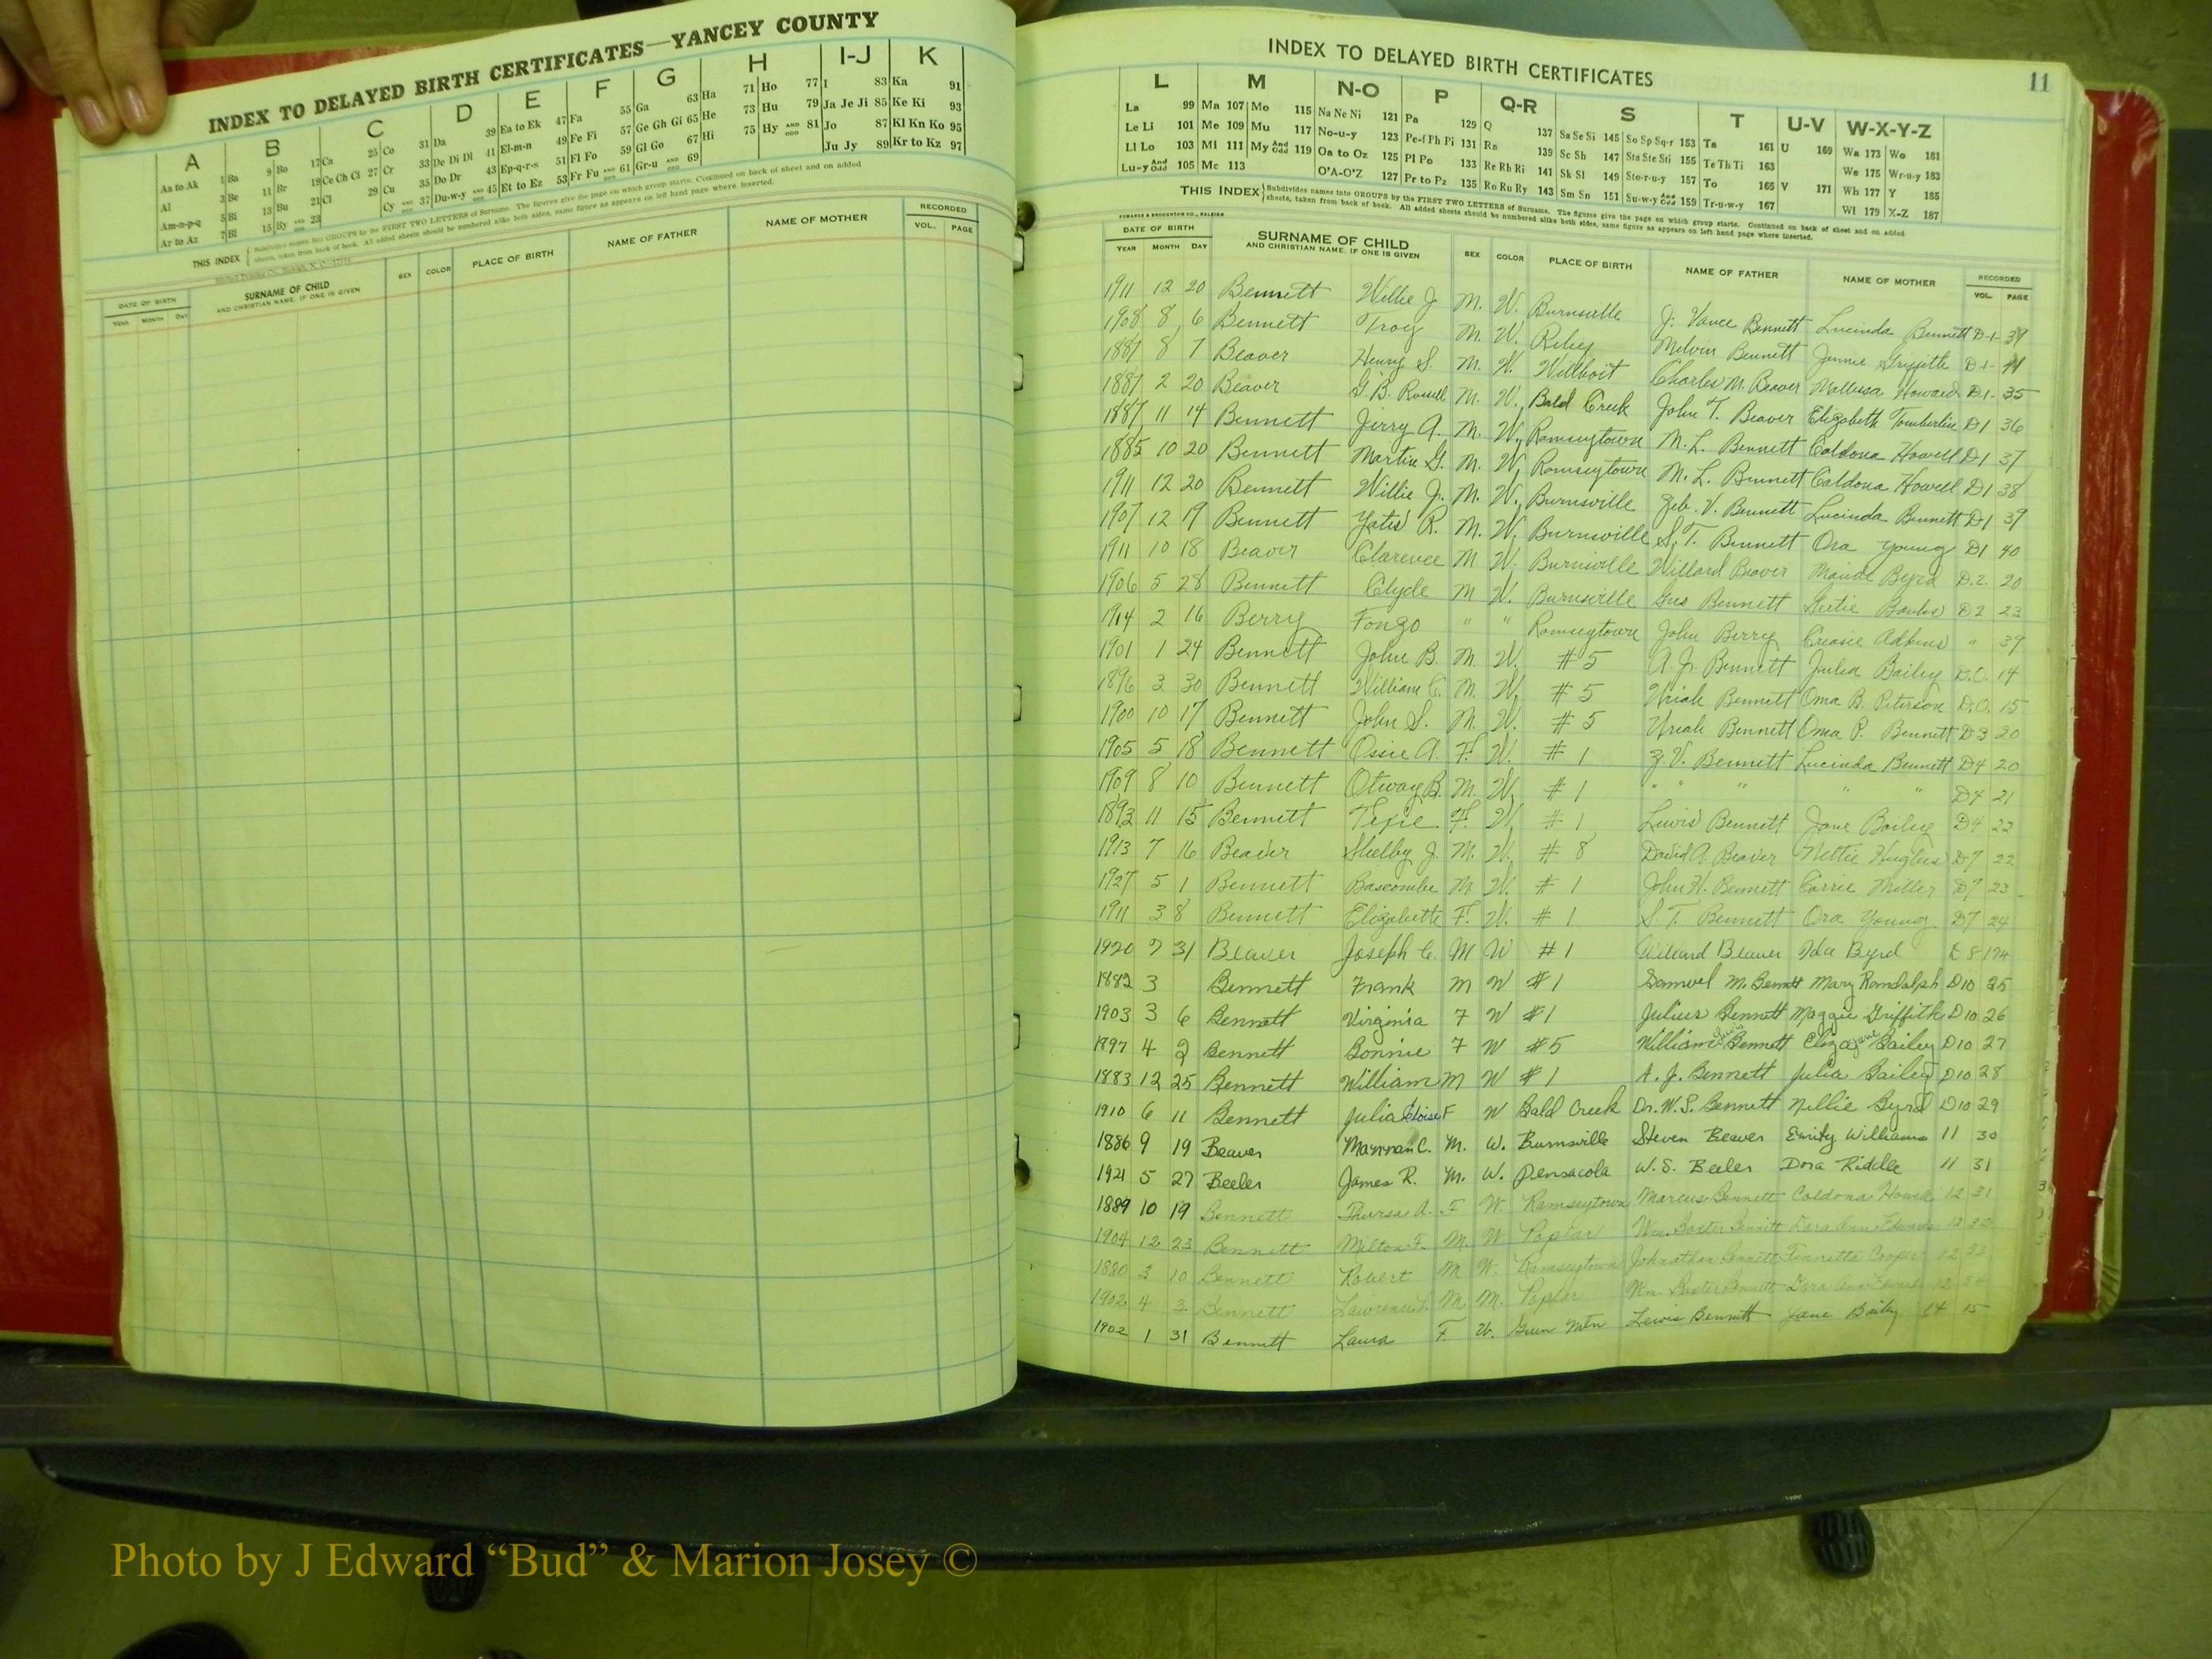 INDEX TO DELAYED BIRTH CERTIFICATES—YANCEY COUNTY
A B C D E F G H I-J K
Aa to Ak 1 Ba 9 Bo 17 Ca 25 Co 31 Da 39 Ea to Ek 47 Fa 55 Ga 63 Ha 71 Ho 77 I 83 Ka 91
Al 3 Be 11 Br 19 Ce Ch Ci 27 Cr 33 De Di Dl 41 El-m-n 49 Fe Fi 57 Ge Gh Gi 65 He 73 Hu 79 Ja Je Ji 85 Ke Ki 93
Am-n-p-q 5 Bi 13 Bu 21 Cl 29 Cu 35 Do Dr 43 Ep-q-r-s 51 Fl Fo 59 Gl Go 67 Hi 75 Hy AND ODD 81 Jo 87 Kl Kn Ko 95
Ar to Az 7 Bl 15 By AND ODD 23 Cy AND ODD 37 Du-w-y AND ODD 45 Et to Ez 53 Fr Fu AND ODD 61 Gr-u AND ODD 69 Ju Jy 89 Kr to Kz 97
THIS INDEX Subdivides names into GROUPS by the FIRST TWO LETTERS of Surname. The figures give the page on which group starts. Continued on back of sheet and on added
sheets, taken from back of book. All added sheets should be numbered alike both sides, same figure as appears on left hand page where inserted.
DATE OF BIRTH SURNAME OF CHILD SEX COLOR PLACE OF BIRTH NAME OF FATHER NAME OF MOTHER RECORDED
YEAR MONTH DAY AND CHRISTIAN NAME, IF ONE IS GIVEN VOL. PAGE
INDEX TO DELAYED BIRTH CERTIFICATES 11
L M N-O P Q-R S T U-V W-X-Y-Z
La 99 Ma 107 Mo 115 Na Ne Ni 121 Pa 129 Q 137 Sa Se Si 145 So Sp Sq-r 153 Ta 161 U 169 Wa 173 Wo 181
Le Li 101 Me 109 Mu 117 No-u-y 123 Pe-f Ph Pi 131 Ra 139 Sc Sh 147 Sta Ste Sti 155 Te Th Ti 163 We 175 Wr-u-y 183
Ll Lo 103 Mi 111 My And Odd 119 Oa to Oz 125 Pl Po 133 Re Rh Ri 141 Sk Sl 149 Sto-r-u-y 157 To 165 V 171 Wh 177 Y 185
Lu-y And Odd 105 Mc 113 O'A-O'Z 127 Pr to Pz 135 Ro Ru Ry 143 Sm Sn 151 Su-w-y And Odd 159 Tr-u-w-y 167 Wi 179 X-Z 187
THIS INDEX Subdivides names into GROUPS by the FIRST TWO LETTERS of Surname. The figures give the page on which group starts. Continued on back of sheet and on added
sheets, taken from back of book. All added sheets should be numbered alike both sides, same figure as appears on left hand page where inserted.
EDWARDS & BROUGHTON CO., RALEIGH
DATE OF BIRTH SURNAME OF CHILD SEX COLOR PLACE OF BIRTH NAME OF FATHER NAME OF MOTHER RECORDED
YEAR MONTH DAY AND CHRISTIAN NAME, IF ONE IS GIVEN VOL. PAGE
1911 12 20 Bennett Willie J. M. W. Burnsville J. Vance Bennett Lucinda Bennett D-1- 39
1908 8 6 Bennett Troy M. W. Riley Melvin Bennett Jennie Griffith D-1-
1887 8 7 Beaver Henry S. M. W. Willhoit Charles M. Beaver Mellissa Howard D-1- 35
1887 2 20 Beaver G. B. Russell M. W. Bald Creek John T. Beaver Elizabeth Tomberlin D1 36
1887 11 14 Bennett Jerry A. M. W. Ramseytown M. L. Bennett Caldona Howell D1 37
1885 10 20 Bennett Martin G. M. W. Ramseytown M. L. Bennett Caldona Howell D1 38
1911 12 20 Bennett Willie J. M. W. Burnsville Zeb. V. Bennett Lucinda Bennett D1 39
1907 12 19 Bennett Yates R. M. W. Burnsville S. T. Bennett Ora Young D1 40
1911 10 18 Beaver Clarence M W. Burnsville Willard Beaver Maude Byrd D.2. 20
1906 5 28 Bennett Clyde M W. Burnsville Gus Bennett Gertie Banks D2 23
1914 2 16 Berry Fonzo " " Ramseytown John Berry Creasie Adkins " 39
1901 1 24 Bennett John B. M. W. #5 A. J. Bennett Julia Bailey D.C. 14
1896 3 30 Bennett William C. M. W. #5 Uriah Bennett Oma B. Peterson D.C. 15
1900 10 17 Bennett John S. M. W. #5 Uriah Bennett Oma P. Bennett D3 20
1905 5 18 Bennett Ossie A. F. W. #1 Z. V. Bennett Lucinda Bennett D4 20
1909 8 10 Bennett Otway B. M. W. #1 " " " " D4 21
1893 11 15 Bennett Texie F. W. #1 Lewis Bennett Jane Bailey D4 22
1913 7 16 Beaver Shelby J. M. W. #8 David A. Beaver Nettie Hughes D7 22
1927 5 1 Bennett Bascombe M W. #1 John H. Bennett Carrie Miller D7 23
1911 3 8 Bennett Elizabeth F. W. #1 S. T. Bennett Ora Young D7 24
1920 7 31 Beaver Joseph C. M W #1 Willard Beaver Ada Byrd D8 174
1882 3 Bennett Frank M W #1 Samuel M. Bennett Mary Randolph D10 25
1903 3 6 Bennett Virginia F W #1 Julius Bennett Maggie Griffith D10 26
1897 4 2 Bennett Bonnie F W #5 William Bennett Eliza Jane Bailey D10 27
1883 12 25 Bennett William M W #1 A. J. Bennett Julia Bailey D10 28
1910 6 11 Bennett Julia Eloise F W Bald Creek Dr. W. P. Bennett Nellie Byrd D10 29
1886 9 19 Beaver Mannan C. M. W. Burnsville Steven Beaver Emity Williams 11 30
1921 5 27 Beeler James R. M. W. Pensacola W. S. Beeler Dora Riddle 11 31
1889 10 19 Bennett Thursa A. F W. Ramseytown Marcus Bennett Caldona Howell 12 31
1904 12 23 Bennett Milton F. M. W Poplar Wm. Baxter Bennett Dora Ann Edwards 12 32
1880 3 10 Bennett Robert M W. Ramseytown Johnathan Bennett Finnetta Cooper 12 33
1902 4 3 Bennett Lawrence M M. Poplar Wm. Baxter Bennett Dora Ann 12
1902 1 31 Bennett Laura F. W. Green Mtn Lewis Bennett Jane Baily 14 15
Photo by J Edward “Bud” & Marion Josey ©